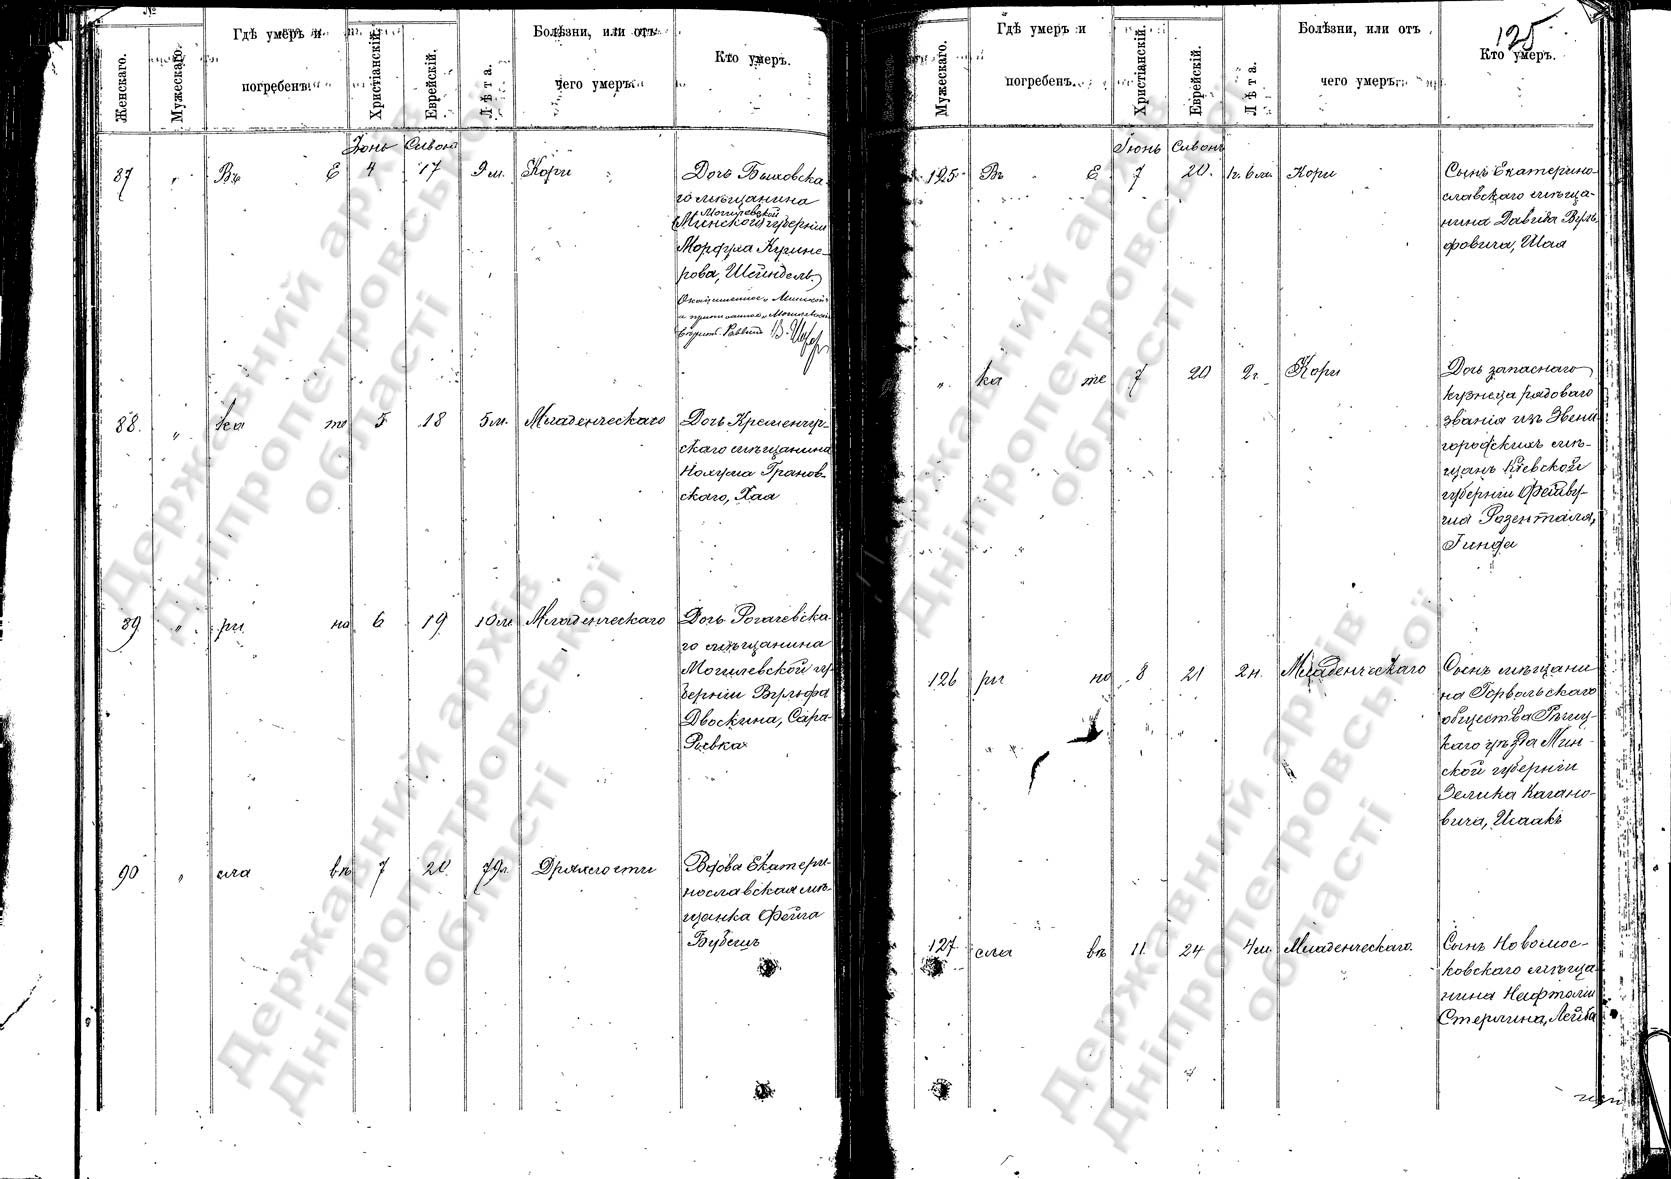 №
Женскаго.
Мужескаго.
Гдѣ умеръ и
погребенъ.
Христіанскій.
Еврейскій.
Лѣта.
Болѣзни, или отъ
чего умеръ.
Кто умеръ.
Іюнь Сивонъ
87 " Въ Е 4 17 9 м. Кори
Дочь Быховска-
го мѣщанина
Могилевской
(Минской) губерніи
рова, Шейндель
В. Шефер
88. " ка те 5 18 5 м. Младенческаго
Дочь Кременчуг-
скаго мѣщанина
Нохума Гранов-
скаго, Хая
89 " ри но 6 19 10 м. Младенческаго
Дочь Рогачевска-
го мѣщанина
Могилевской гу-
берніи Вульфа
Двоскина, Сара-
Ривка
90 " сла въ 7 20 79 л. Дряхлости
Вдова Екатери-
нославская мѣ-
щанка Фейга
Мужескаго.
Гдѣ умеръ и
погребенъ.
Христіанскій.
Еврейскій.
Лѣта.
Болѣзни, или отъ
чего умеръ.
125
Кто умеръ.
Іюнь Сивонъ
125 Въ Е 7 20. 1 г. 6 м. Кори
Сынъ Екатерино-
славскаго мѣща-
нина Давида Вуль-
фовича, Шая
" ка те 7 20 2 г. Кори
Дочь запаснаго
кузнеца рядоваго
званія изъ Звени-
городскихъ мѣ-
щанъ Кіевской
губерніи Файву-
ша Разенталя,
Гинда
126 ри но 8 21 2 н. Младенческаго
Сынъ мѣщани-
на Горвольскаго
общества Рѣчиц-
каго уѣзда Мин-
ской губерніи
Зелика Кагано-
вича, Исаакъ
127 сла въ 11 24 4 м. Младенческаго.
Сынъ Новомос-
ковскаго мѣща-
нина Нафтоліи
Стерлина, Лейба
Державний архів
Дніпропетровської
області
Державний архів
Дніпропетровської
області
Державний архів
Дніпропетровської
області
Державний архів
Дніпропетровської
області